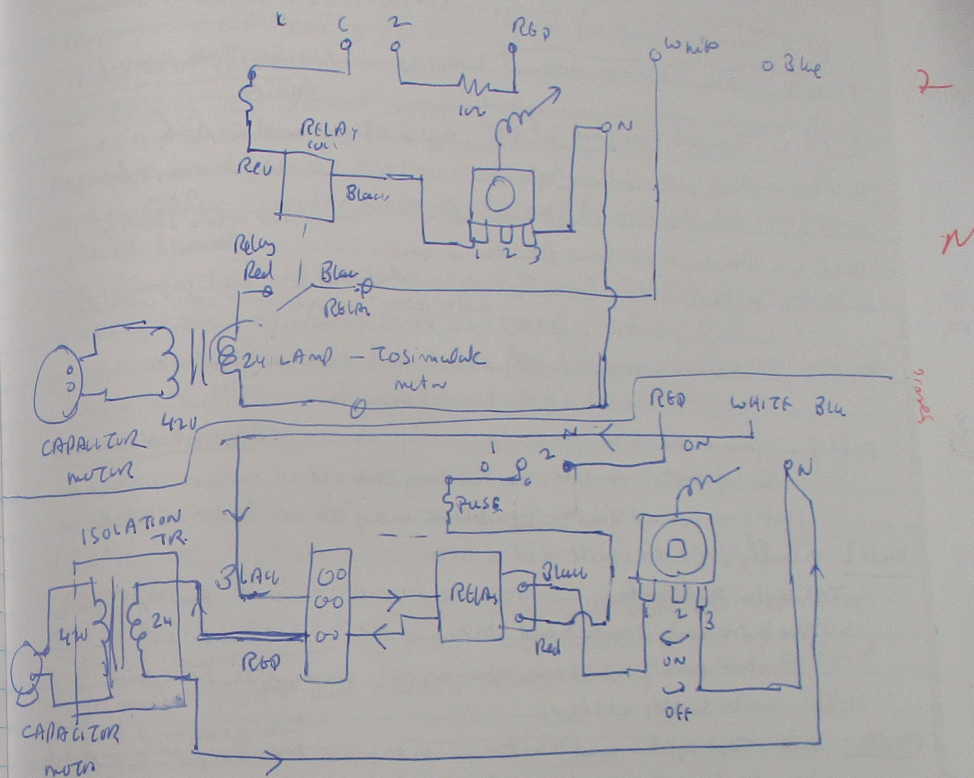 C 2 RED
White
Blue
10Ω
N
RELAY
COIL
Red
Black
1 2 3
Relay
Red
Black
RELAY
24 LAMP - To simulate
motor
42V
CAPACITOR
MOTOR
RED WHITE Blu
N
ON
1
2
N
FUSE
ISOLATION
TR.
BLACK
RELAY
Black
Red
1 2 3
ON
OFF
42V
24
RED
CAPACITOR
MOTOR
N